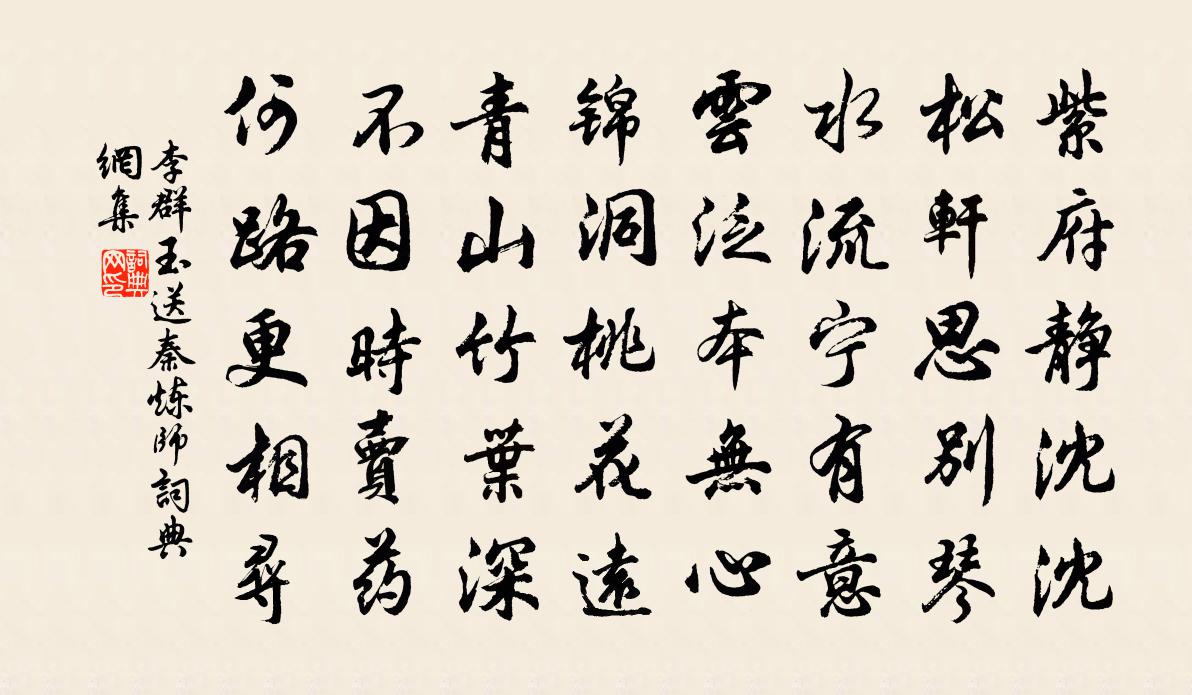 紫府静沈沈
松軒思别琴
水流宁有意
雲泛本無心
锦洞桃花遠
青山竹葉深
不因時賣药
何路更相尋
李群玉送秦炼師詞典
網集
詞典网印